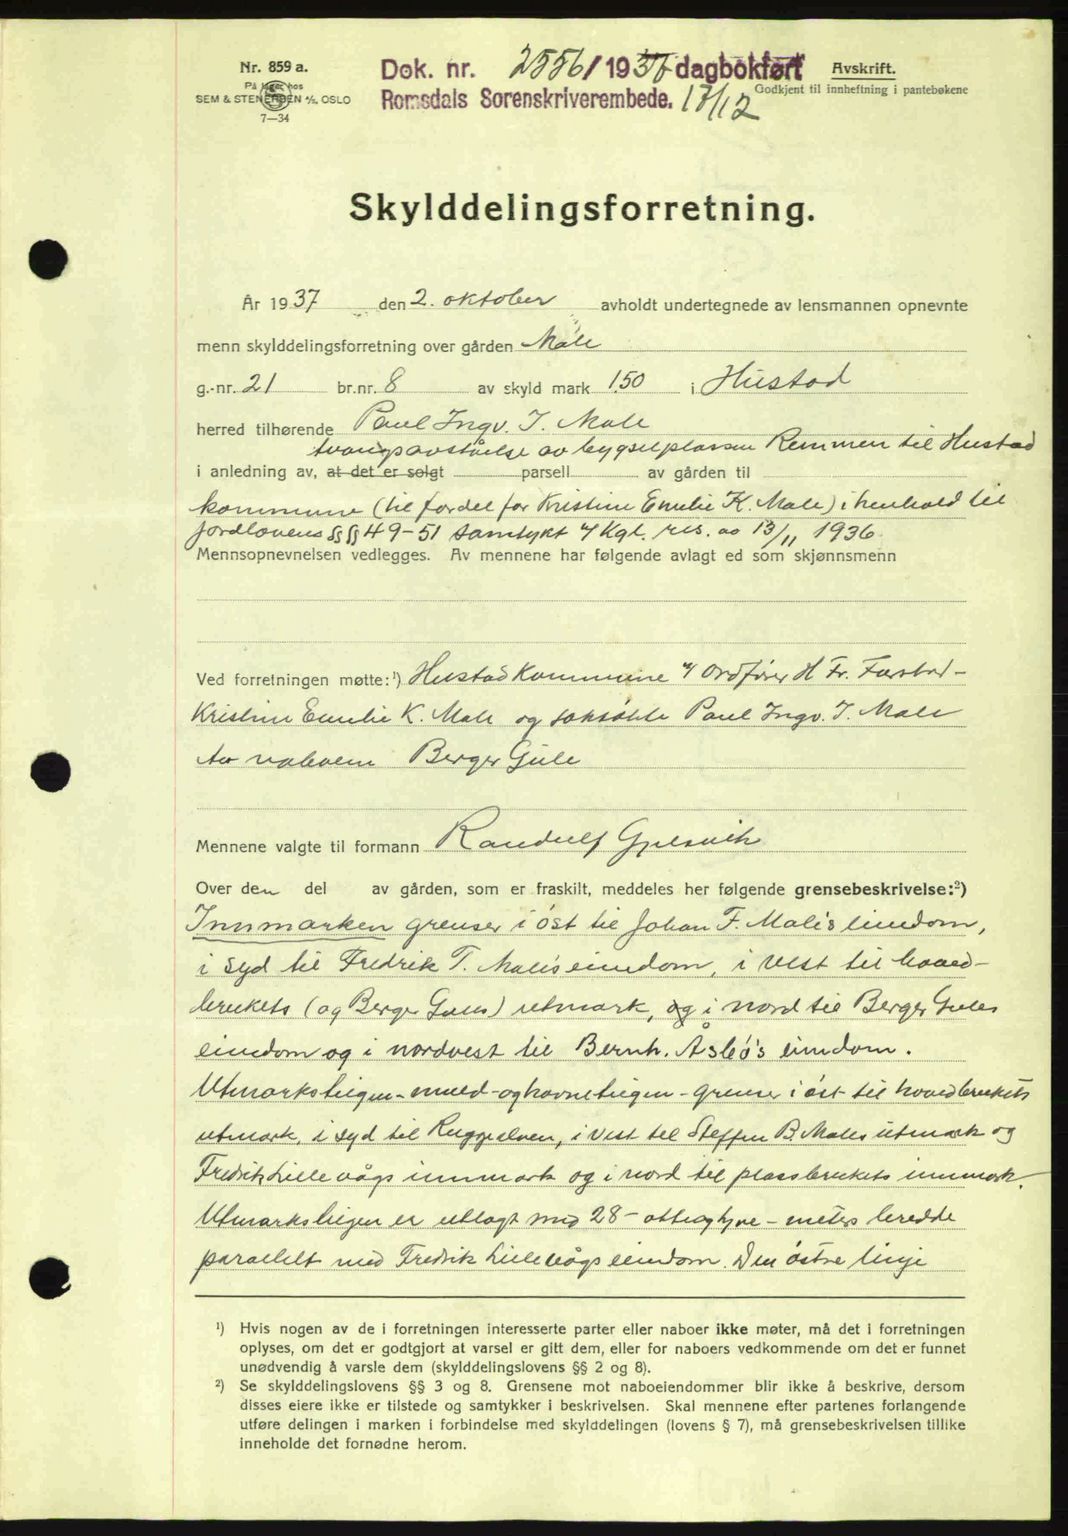 Nr. 859 a.
På lager hos
SEM & STENERSEN A/S, OSLO
7—34
Dok. nr. 2556/1937 dagbokført
Romsdals Sorenskriverembede. 17/12
Avskrift.
Godkjent til innheftning i pantebøkene
Skylddelingsforretning.
År 1937 den 2. oktober avholdt undertegnede av lensmannen opnevnte
menn skylddelingsforretning over gården Male
g.-nr. 21 br.nr. 8 av skyld mark 1.50 i Hustad
herred tilhørende Paul Ingv. I. Male
tvangsavståelse av bygselplassen Remmen til Hustad
i anledning av, at det er solgt parsell av gården til
kommune (til fordel for Kristine Emelie K. Male) i henhold til
jordlovens §§ 49-51 samtykt v/ Kgl. res. av 13/11 1936.
Mennsopnevnelsen vedlegges. Av mennene har følgende avlagt ed som skjønnsmenn
Ved forretningen møtte:¹) Hustad kommune v/ Ordfører H Fr. Farstad -
Kristine Emelie K. Male og saksøkte Paul Ingv. I. Male
Av naboene Berger Gule
Mennene valgte til formann Randulf Gjelsvik
Over den del av gården, som er fraskilt, meddeles her følgende grensebeskrivelse:²)
Innmarken grenser i øst til Johan F. Male's eiendom,
i syd til Fredrik T. Male's eiendom, i vest til hoved-
brukets (og Berger Gules) utmark, og i nord til Berger Gules
eiendom og i nordvest til Bernh. Åsbø's eiendom.
Utmarksteigen - muld - og havneteigen - grenser i øst til hovedbrukets
utmark, i syd til Ruggealven, i vest til Steffen B. Males utmark og
Fredrik Lillevågs innmark og i nord til plassbrukets innmark.
Utmarksteigen er utlagt med 28 - otteogtyve - meters bredde
parallelt med Fredrik Lillevågs eiendom. Den østre linje
¹) Hvis nogen av de i forretningen interesserte parter eller naboer ikke møter, må det i forretningen
oplyses, om det er godtgjort at varsel er gitt dem, eller for naboers vedkommende om det er funnet
unødvendig å varsle dem (skylddelingslovens §§ 2 og 8).
²) Se skylddelingslovens §§ 3 og 8. Grensene mot naboeiendommer blir ikke å beskrive, dersom
disses eiere ikke er tilstede og samtykker i beskrivelsen. Skal mennene efter partenes forlangende
utføre delingen i marken i forbindelse med skylddelingen (lovens § 7), må grensebeskrivelsen tillike
inneholde det fornødne herom.